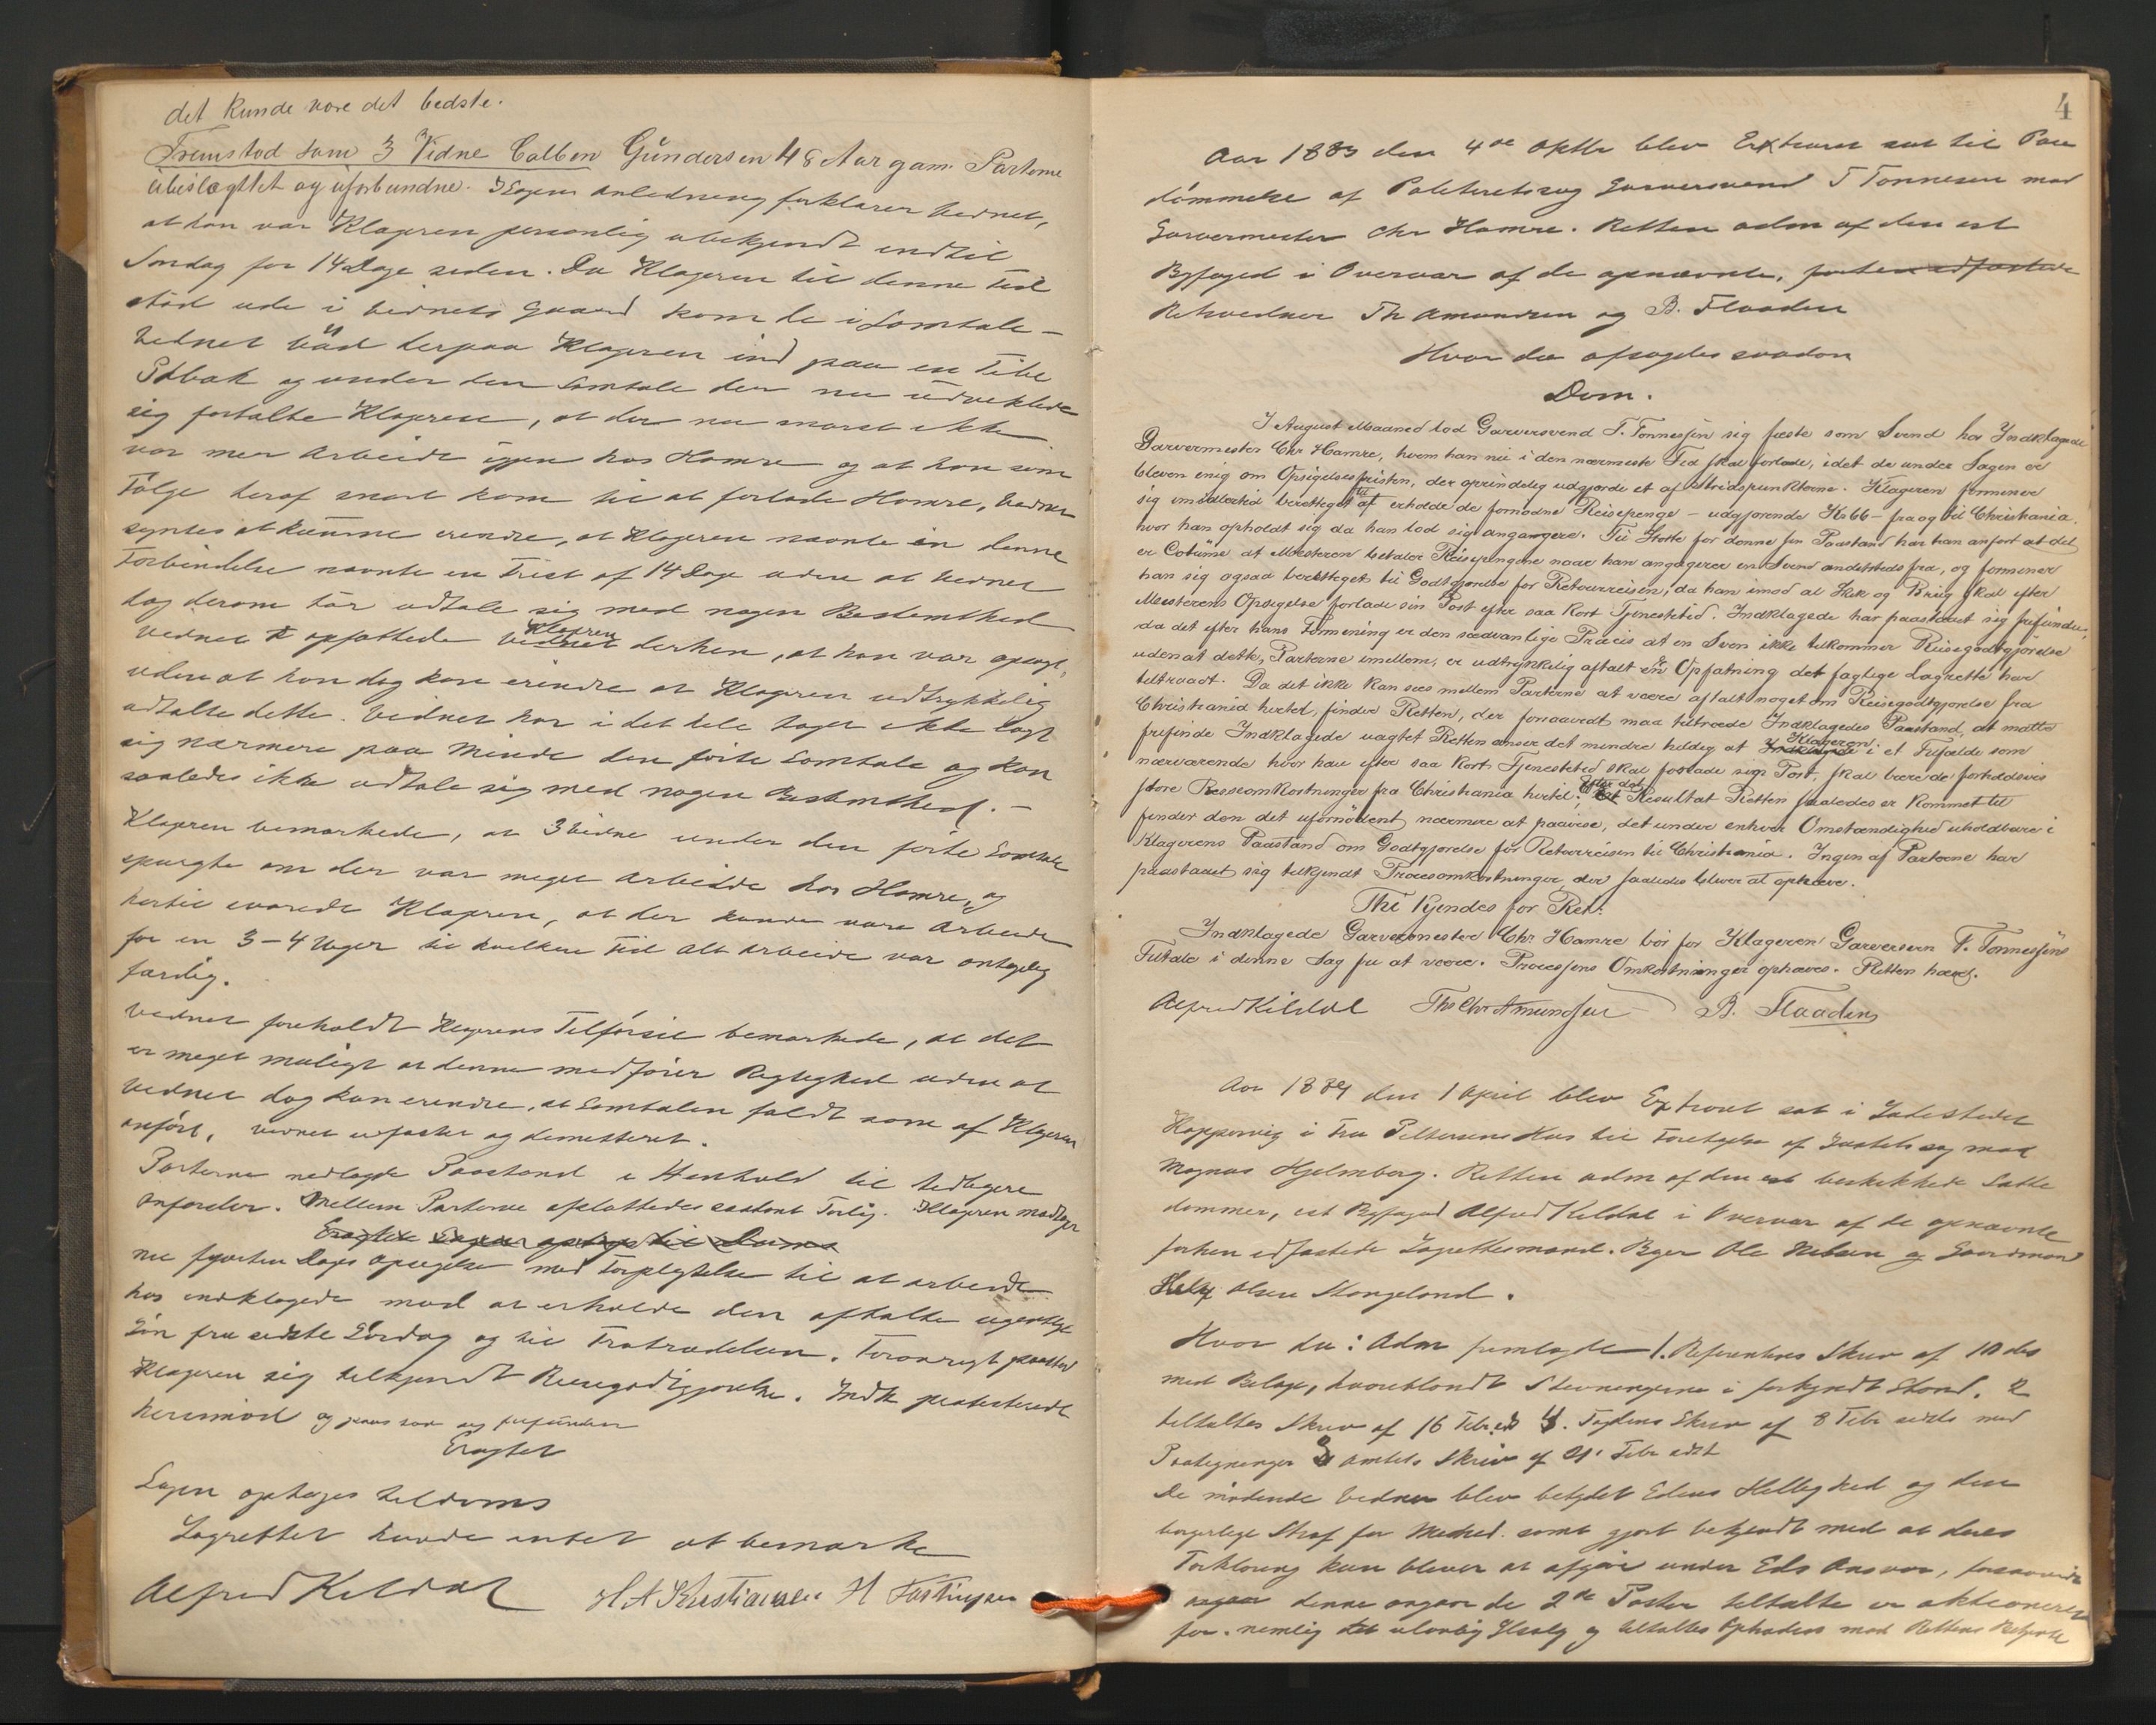 det kunde være det bedste.
Fremstod som 3 Vidne Calben Gundersen 48 Aar gam. Parterne
ubeslægtet og uforbundne. I Sagens Anledning forklarer Vidnet,
at han var Klageren personlig ubekjendt indtil
Søndag for 14 Dage siden. Da Klageren til denne Tid
stod ude i Vidnets Gaard kom de i Samtale –
Vidnet bad derpaa Klageren ind paa en Pibe
Tobak og under den Samtale der nu udviklede
sig fortalte Klageren, at der nu snart ikke
var mer Arbeide igjen hos Hamre og at han som
Følge heraf snart kom til at forlade Hamre, Vidnet
syntes at kunne erindre, at Klageren nævnte in denne
Forbindelse nævnte en Frist af 14 Dage uden at Vidnet
dog derom tør udtale sig med nogen Bestemthed
Vidnet opfattede Klageren derhen, at han var opsagt,
uden at han dog kan erindre at Klageren udtrykkelig
udtalte dette. Vidnet har i det hele taget ikke lagt
sig nærmere paa Minde den førte Samtale og kan
saaledes ikke udtale sig med nogen Bestemthed. –
Klageren bemærkede, at 3 Vidne under den førte Samtale
spurgte om der var meget Arbeide hos Hamre, og
hertil svarede Klageren, at der kunde være Arbeide
for en 3–4 Uger til hvilken Tid alt Arbeide var antagelig
færdig.
Vidnet foreholdt Klagerens Tilførsel bemærkede, at det
er meget muligt at denne medfører Rigtighed uden at
Vidnet dog kan erindre, at Samtalen faldt som af Klageren
anført. Vidnet edfæstet og demitteret.
Parterne nedlagde Paastand i Henhold til tidligere
anførsler. Mellem Parterne afsluttedes saadant Forlig. Klageren modtager
Eragtet Sagen optages til Doms
nu fjorten Dages Opsigelse med Forpligtelse til at arbeide
hos indklagede mod at erholde den aftalte ugentlige
Løn fra sidste Lørdag og til Fratrædelsen. Forøvrigt paastod
Klageren sig tilkjendt Reisegodtgjørelse. Indk protesterede
herimod og paastod sig frifunden
Eragtet
Sagen optages til doms
Lagrettet havde intet at bemærke
Alfred Kildal H A Kristiansen H
4
Aar 1883 den 4de Oktbr blev Extraret sat til Paa
dømmelse af Politiretssag Garversvend T Tønnesen mod
Garvermester Chr Hamre. Retten adm af den est
Byfoged i Overvær af de opnævnte, forhen edfæstede
Retsvidner Th Amundsen og B. Flaaden
Hvor da afsagdes saadan
Dom.
I August Maaned lod Garversvend T. Tønnessen sig fæste som Svend hos Indklagede
Garvermester Chr. Hamre, hvem han nu i den nærmeste Tid skal forlade, idet de under Sagen er
bleven enig om Opsigelsesfristen, der oprindelig udgjorde et af Stridspunkterne. Klageren formener
sig imidlertid berettiget til at erholde de fornødne Reisepenge – udgjørende Kr 66 – fra og til Christiania,
hvor han opholdt sig da han lod sig angagere. Til Støtte for denne sin Paastand har han anført at det
er Cotüme at Mesteren betaler Reisepengene naar han angagerer en Svend andetsteds fra, og formener
han sig ogsaa berettiget til Godtgjørelse for Retourreisen, da han imod al Skik og Brug skal efter
Mesterens Opsigelse forlade sin Post efter saa kort Tjenestetid. Indklagede har paastaaet sig frifunden,
da det efter hans Formening er den sædvanlige Praxis at en Sven ikke tilkommer Reisegodtgjørelse
uden at dette, Parterne imellem, er udtrykkelig aftalt en Opfatning det faglige Lagrette har
tiltraadt. Da det ikke kan sees mellem Parterne at være aftalt noget om Reisegodtgjørelse fra
Christiania hertil, finder Retten, der forsaavidt maa tiltræde Indklagedes Paastand, at maatte
frifinde Indklagede uagtet Retten anser det mindre heldig at Indklagede Klageren i et Tilfælde som
nærværende hvor han efter saa kort Tjenestetid skal forlade sin Post, skal bære de forholdsvis
store Reiseomkostninger fra Christiania hertil. Efter det Resultat Retten saaledes er kommet til
finder den det ufornødent nærmere at paavise, det under enhver Omstændighed uholdbare i
Klagerens Paastand om Godtgjørelse for Retourreisen til Christiania. Ingen af Parterne har
paastaaet sig tilkjendt Procesomkostninger, der saaledes bliver at ophæve.
Thi Kjendes for Ret:
Indklagede Garvermester Chr. Hamre bør for Klageren Garversven T. Tønnessens
Tiltale i denne Sag fri at være. Processens Omkostninger ophæves. Retten hævet.
Alfred Kildal Ths Chr Amundsen B. Flaaden
Aar 1884 den 1 April blev Extraret sat i Ladestedet
Kopervig i Fru Pettersens Hus til Foretagelse af Justitssag mod
Magnus Hjelmberg. Retten adm af den beskikkede Sætte
dommer, est Byfoged Alfred Kildal i Overvær af de opnævnte
forhen edfæstede Lagrettesmænd. Bager Ole Nielsen og Gaardmand
Helg Olsen Stangeland.
Hvor da: Adm fremlagde 1. Referentens Skriv af 10 ds
med Bilage, hvoriblandt Stevningerne i forkyndt Stand. 2
tiltaltes Skriv af 16 Febr. 4. Fogdens Skriv af 8 Febr sidstl med
Paategninger 3 Amtets Skriv af 21. Febr sidst
De mødende Vidner blev betydet Edens Hellighed og den
borgerlige Straf for Mened. samt gjort bekjendt med at deres
Forklaring kun bliver at afgive under Eds Ansvar, forsaavidt
angaar denne angaar de 2de Poster tiltalte er aktioneret
for. nemlig det ulovlig Ølsalg og tiltaltes Ophødens mod Rettens Betjente